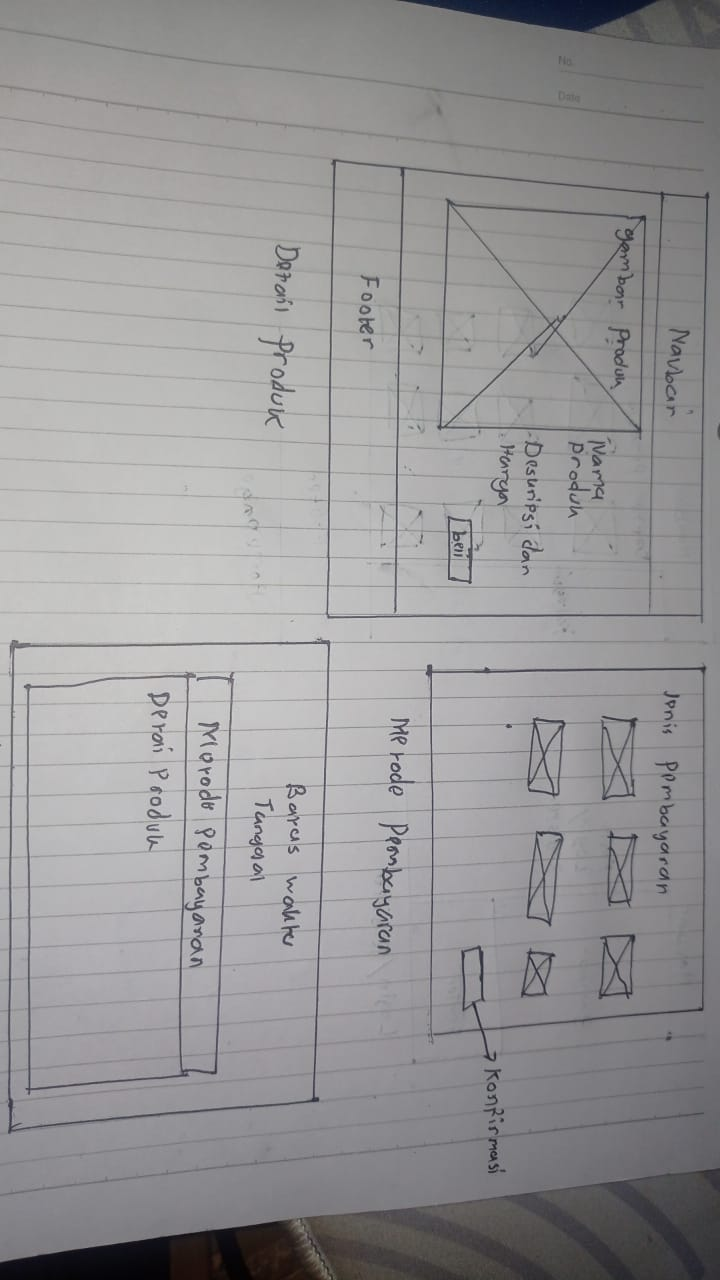 No.
Date
Navbar
gambar produk
Nama
produk
Desuripsi dan
Harga
beli
Footer
Detail produk
Jenis pembayaran
Konfirmasi
Metode pembayaran
Batas waktu
Tanggal
Metode pembayaran
Detai produk